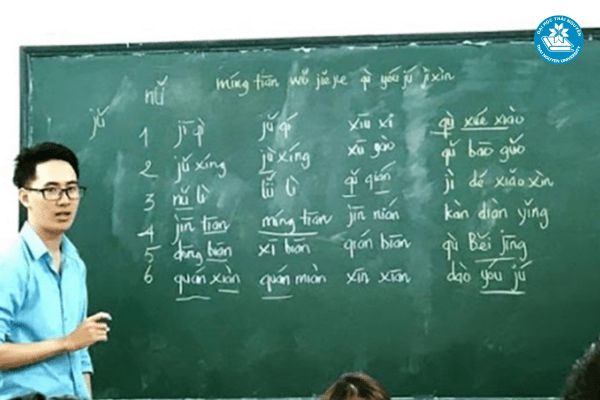 ĐẠI HỌC THÁI NGUYÊN
THAI NGUYEN UNIVERSITY
míng tiān wǒ jiě jie qù yóu jú jì xìn
nǚ
jǔ
1 jī qì jǔ qí xiū xi qù xué xiào
2 jǔ xíng jǔ xíng xū gào qǔ bāo guǒ
3 nǔ lì lǜ lì qǔ qián jì dé xiǎo xīn
4 jīn tiān míng tiān jīn nián kàn diàn yǐng
5 dōng biān xī biān qián biān qù Běi jīng
6 quán xiàn quán miàn xīn xiān dào yóu jú